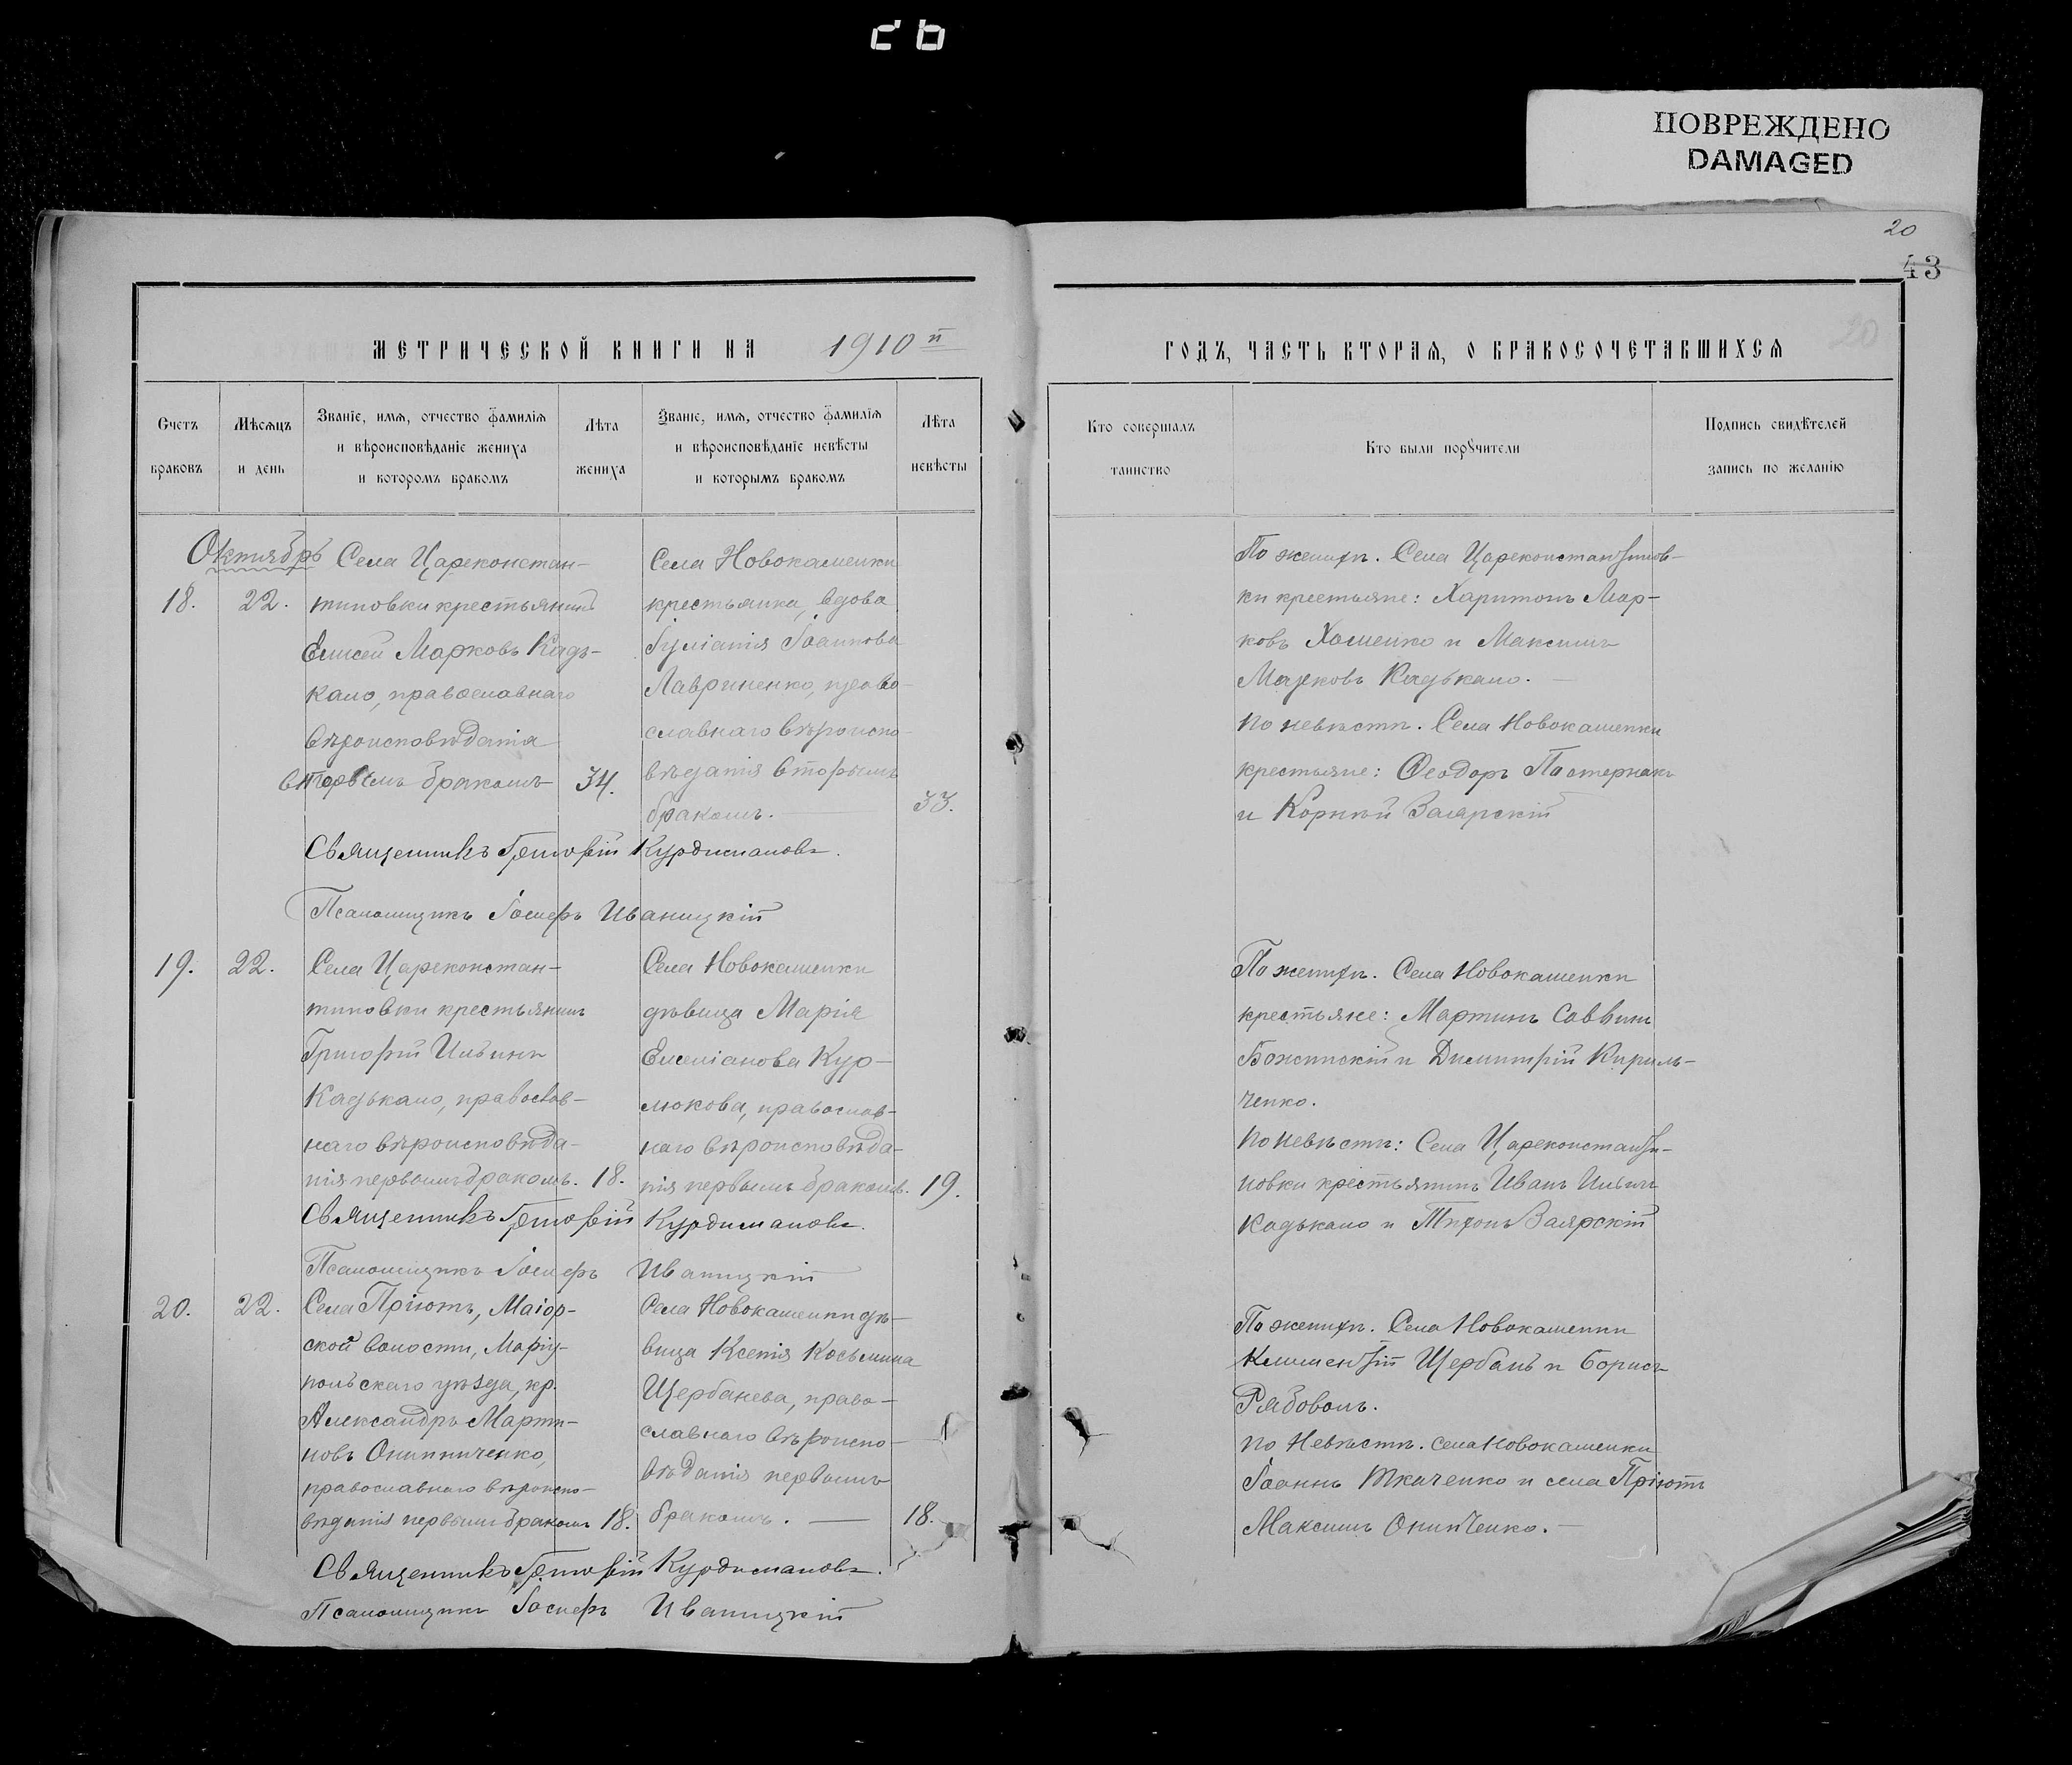 26
ПОВРЕЖДЕНО
DAMAGED
20
43
20
МЕТРИЧЕСКОЙ КНИГИ НА 1910 й
ГОДЪ, ЧАСТЬ ВТОРАЯ, О БРАКОСОЧЕТАВШИХСЯ
Счетъ
браковъ
Мѣсяцъ
и день
Званіе, имя, отчество фамилія
и вѣроисповѣданіе жениха
и которомъ бракомъ
Лѣта
жениха
Званіе, имя, отчество фамилія
и вѣроисповѣданіе невѣсты
и которымъ бракомъ
Лѣта
невѣсты
Кто совершалъ
таинство
Кто были поручители
Подпись свидѣтелей
запись по желанію
Октябрь
18.
22.
Села Цареконстан-
тиновки крестьянинъ
Елисей Марковъ Кадь-
кало, православнаго
вѣроисповѣданія
вторымъ бракомъ
34.
Села Новокаменки
крестьянка, вдова
Іуліанія Іоаннова
Лавриненко, право-
славнаго вѣроиспо-
вѣданія вторымъ
бракомъ.
33.
По женихѣ. Села Цареконстантинов-
ки крестьяне: Харитонъ Мар-
ковъ Хоменко и Максимъ
Марковъ Кадькало.
по невѣстѣ. Села Новокаменки
крестьяне: Ѳеодоръ Пастернакъ
и Корнѣй Заярскій
Священникъ Григорій Курдимановъ.
Псаломщикъ Іосифъ Иваницкій
19.
22.
Села Цареконстан-
тиновки крестьянинъ
Григорій Ильинъ
Кадькало, православ-
наго вѣроисповѣда-
нія первымъ бракомъ.
18.
Села Новокаменки
дѣвица Марія
Емеліанова Кур-
люкова, православ-
наго вѣроисповѣда-
нія первымъ бракомъ.
19.
По женихѣ. Села Новокаменки
крестьяне: Мартинъ Саввинъ
и Димитрій Кириль-
ченко.
по невѣстѣ: Села Цареконстанти-
новки крестьянинъ Иванъ Ильинъ
Кадькало и Тихонъ Заярскій
Священникъ Григорій Курдимановъ.
Псаломщикъ Іосифъ Иваницкій
20.
22.
Села Пріютъ, Маіор-
ской волости, Маріу-
польскаго уѣзда, кр.
Александръ Марти-
новъ Онипниченко,
православнаго вѣроиспо-
вѣданія первымъ бракомъ
18.
Села Новокаменки дѣ-
вица Ксенія Косьмина
Щербанева, право-
славнаго вѣроиспо-
вѣданія первымъ
бракомъ.
18.
По женихѣ. Села Новокаменки
Климентій Щербань и Борисъ
Рябоволъ.
по Невѣстѣ. села Новокаменки
Іоаннъ Ткаченко и села Пріютъ
Максимъ Онипченко.
Священникъ Григорій Курдимановъ.
Псаломщикъ Іосифъ Иваницкій